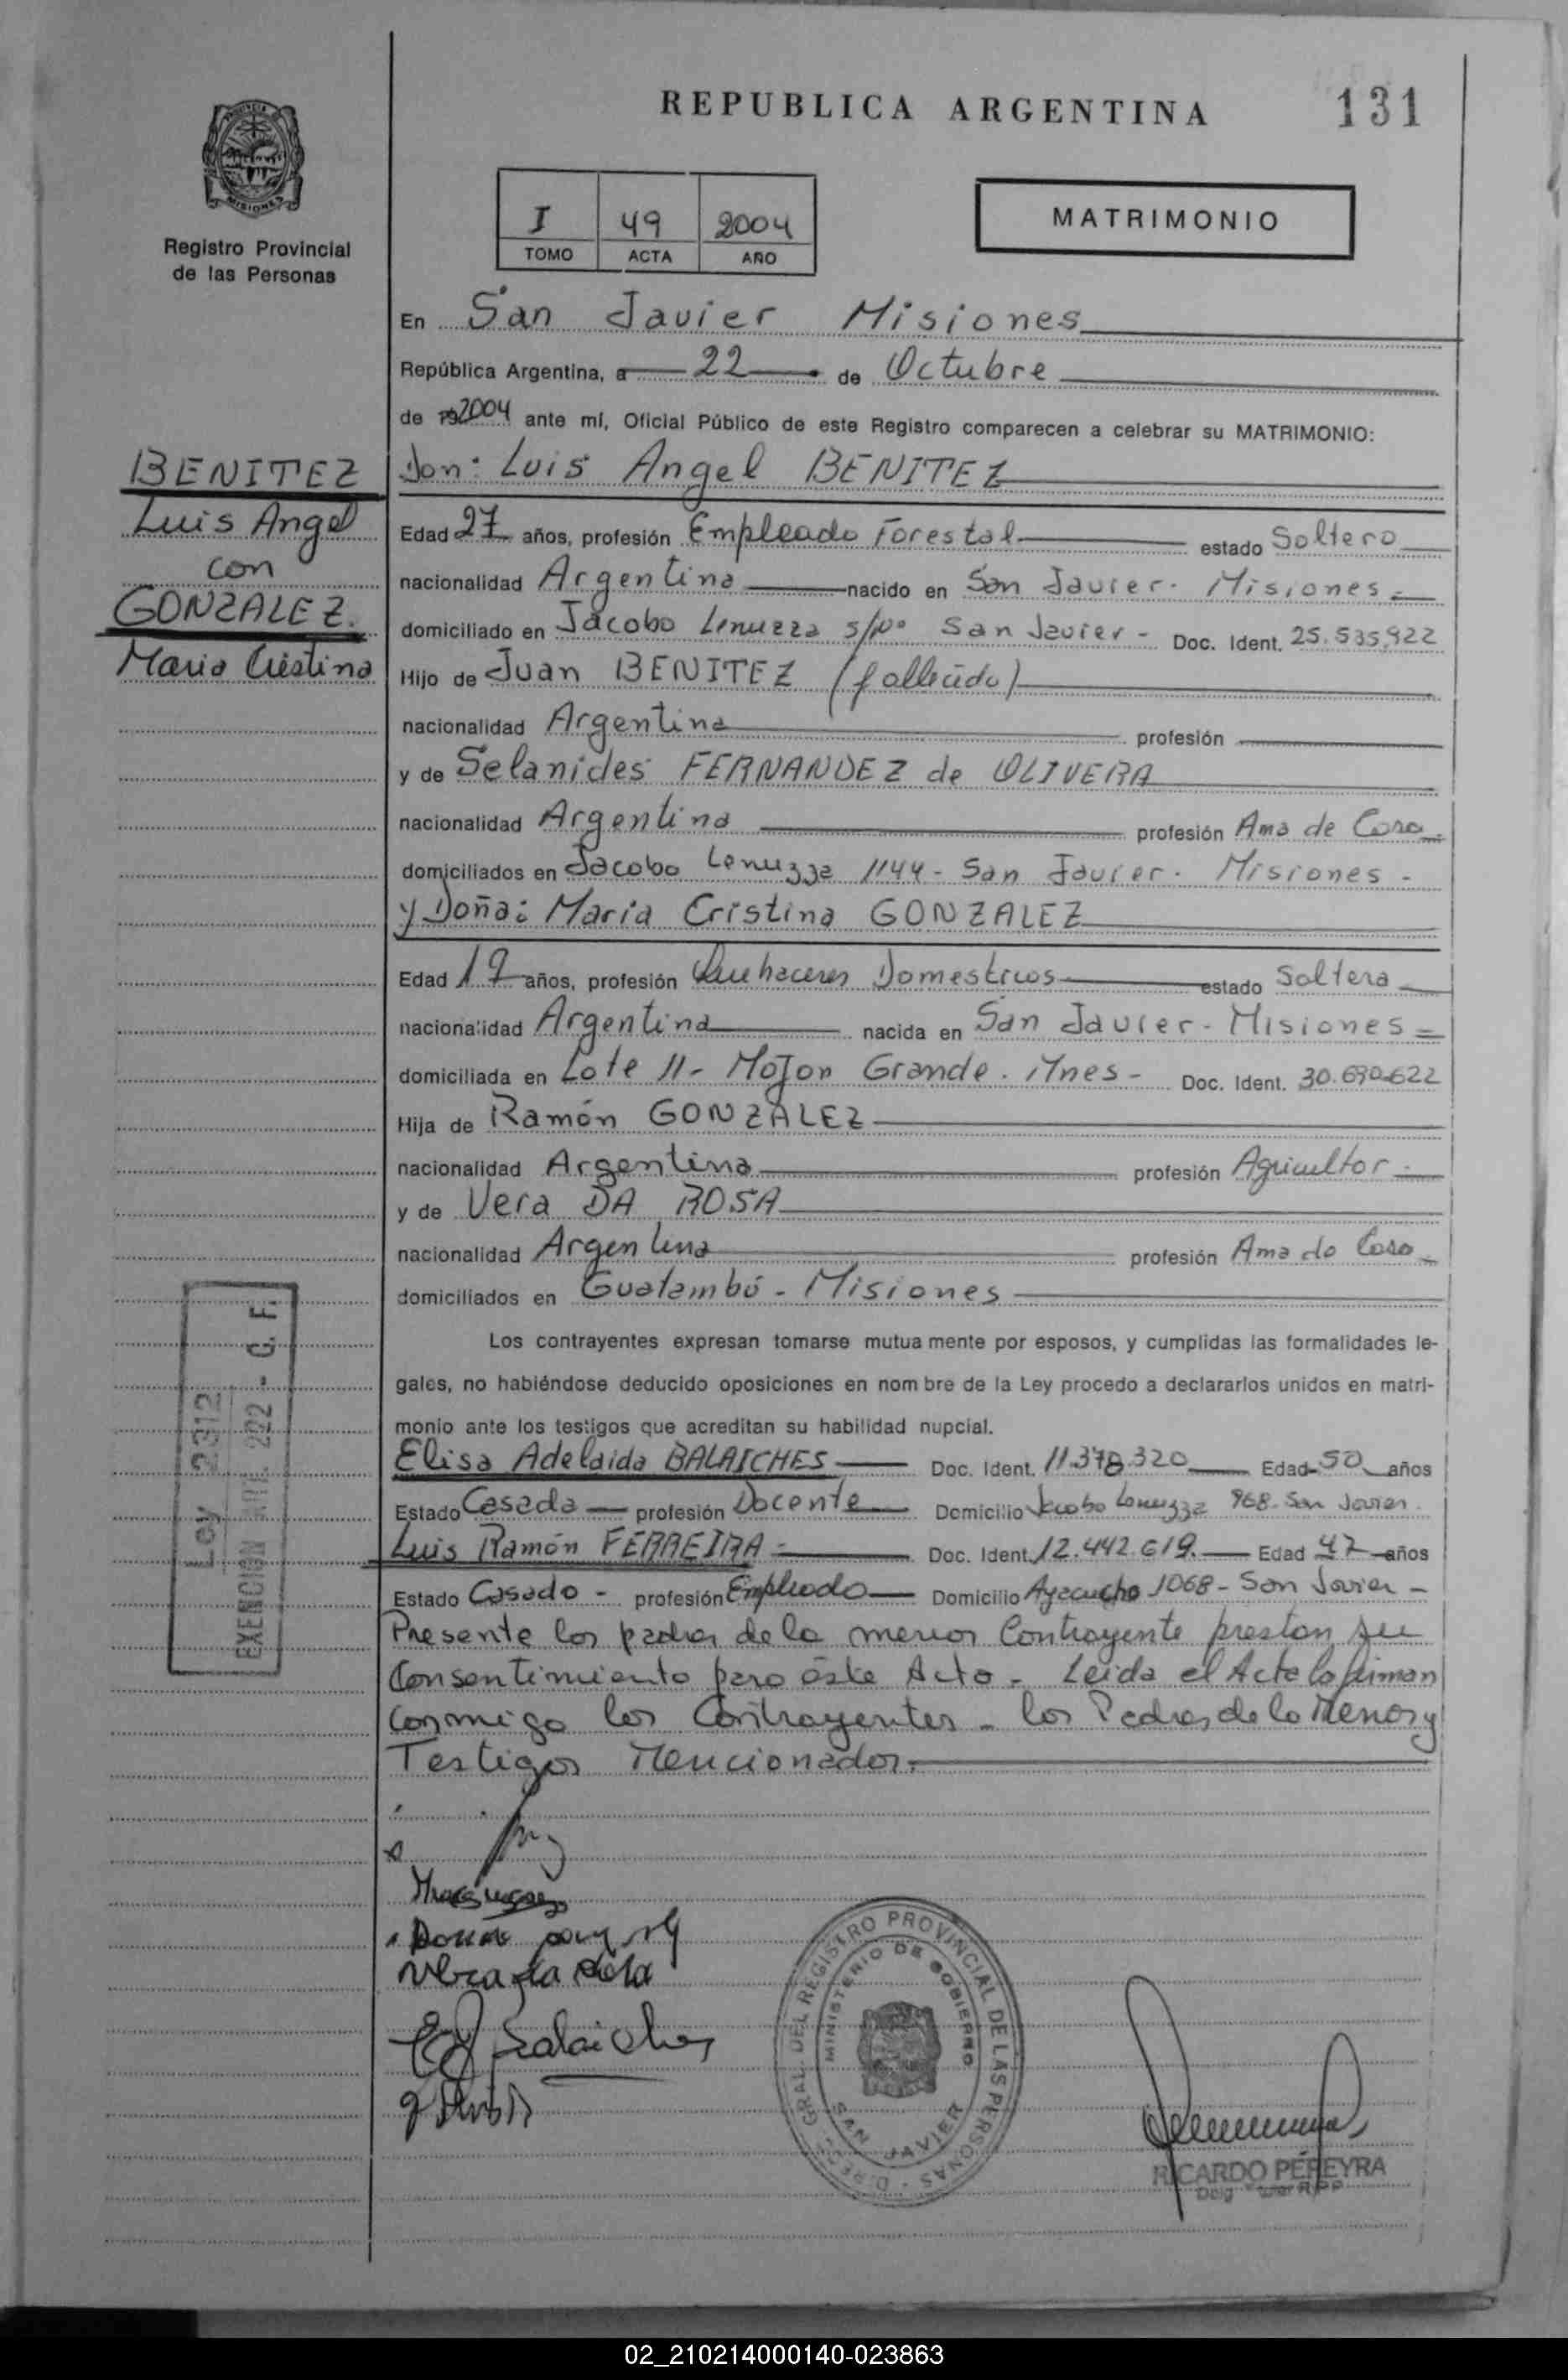 REPUBLICA ARGENTINA
131
MISIONES
Registro Provincial
de las Personas
I 49 2004
TOMO ACTA AÑO
MATRIMONIO
En San Javier Misiones
República Argentina, a 22 de Octubre
de 2004 ante mí, Oficial Público de este Registro comparecen a celebrar su MATRIMONIO:
BENITEZ
Luis Angel
con
GONZALEZ.
Maria Cristina
Don: Luis Angel BENITEZ
Edad 27 años, profesión Empleado Forestal estado Soltero
nacionalidad Argentina nacido en San Javier - Misiones -
domiciliado en Jacobo Lenuzza s/Nº San Javier - Doc. Ident. 25.535.922
Hijo de Juan BENITEZ (fallecido)
nacionalidad Argentina profesión
y de Selanides FERNANDEZ de OLIVERA
nacionalidad Argentina profesión Ama de Casa
domiciliados en Jacobo Lenuzza 1144 - San Javier - Misiones -
y Doña: Maria Cristina GONZALEZ
Edad 19 años, profesión Quehaceres Domesticos estado Soltera
nacionalidad Argentina nacida en San Javier - Misiones -
domiciliada en Lote 11 - Mojon Grande - Mnes - Doc. Ident. 30.690.622
Hija de Ramón GONZALEZ
nacionalidad Argentina profesión Agricultor -
y de Vera DA ROSA
nacionalidad Argentina profesión Ama de Casa
domiciliados en Guatambú - Misiones
Los contrayentes expresan tomarse mutua mente por esposos, y cumplidas las formalidades le-
gales, no habiéndose deducido oposiciones en nom bre de la Ley procedo a declararlos unidos en matri-
monio ante los testigos que acreditan su habilidad nupcial.
Elisa Adelaida BALAICHES Doc. Ident. 11.378.320 Edad 50 años
Estado Casada profesión Docente Domicilio Jacobo Lenuzza 968 - San Javier
Luis Ramón FERREIRA - Doc. Ident. 12.442.619. Edad 47 años
Estado Casado - profesión Empleado Domicilio Ayacucho 1068 - San Javier -
Presente los padres de la menor Contrayente prestan su
Consentimiento para éste Acto - Leida el Acta la firman
conmigo los Contrayentes - los Padres de la Menor y
Testigos Mencionados.
Ley 2312
EXENCION ART. 202 - C. F.
Vera da Rosa
Balaiches
DIREC. GRAL. DEL REGISTRO PROVINCIAL DE LAS PERSONAS
MINISTERIO DE GOBIERNO
SAN JAVIER
RICARDO PEREYRA
02_210214000140-023863